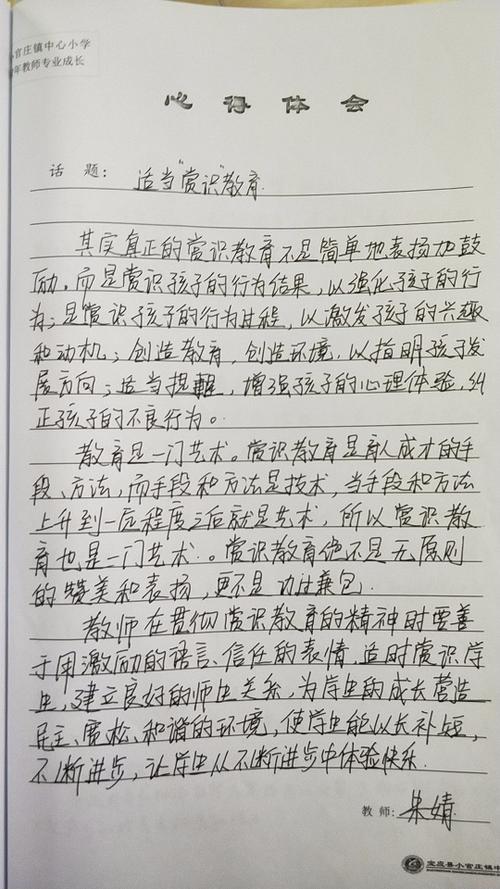 小官庄镇中心小学
年教师专业成长
心得体会
话 题： 适当“赏识”教育.
其实真正的赏识教育不是简单地表扬加鼓
励，而是赏识孩子的行为结果，以强化孩子的行
为；是赏识孩子的行为过程，以激发孩子的兴趣
和动机；创造教育，创造环境，以指明孩子发
展方向；适当提醒，增强孩子的心理体验，纠
正孩子的不良行为。
教育是一门艺术。赏识教育是育人成才的手
段、方法，而手段和方法是技术，当手段和方法
上升到一定程度之后就是艺术，所以赏识教
育也是一门艺术。赏识教育绝不是无原则
的赞美和表扬，更不是 兼包.
教师在贯彻赏识教育的精神时要善
于用激励的语言、信任的表情，适时赏识学
生，建立良好的师生关系，为学生的成长营造
民主、宽松、和谐的环境，使学生能以长补短，
不断进步，让学生从不断进步中体验快乐.
教师: 朱婧
宝应县小官庄镇中